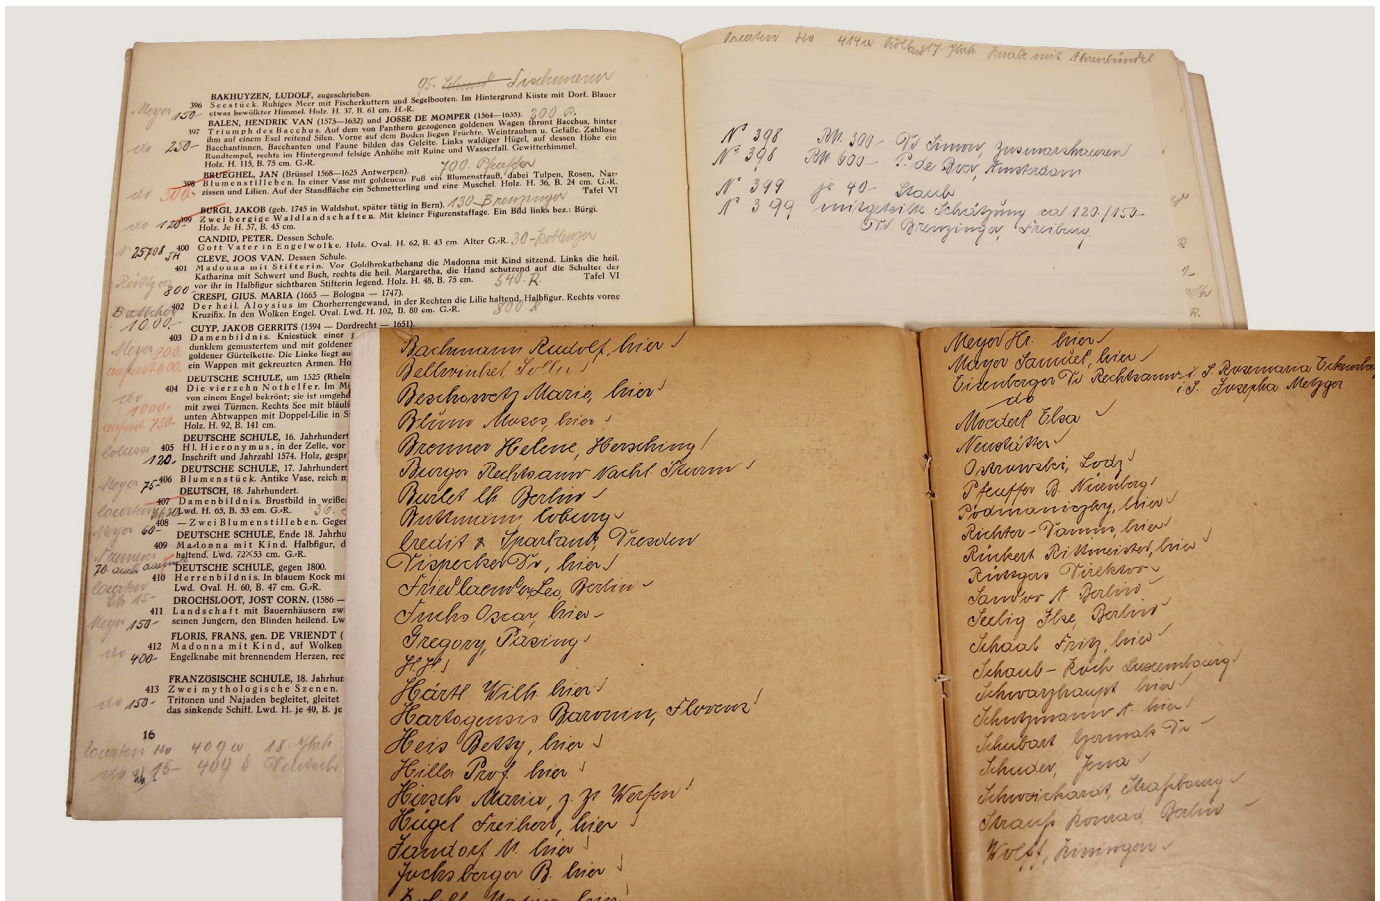 95. Tischmann
BAKHUYZEN, LUDOLF, zugeschrieben.
Meyer 150- 396 Seestück. Ruhiges Meer mit Fischerkuttern und Segelbooten. Im Hintergrund Küste mit Dorf. Blauer
etwas bewölkter Himmel. Holz. H. 37, B. 61 cm. H.-R.
BALEN, HENDRIK VAN (1575—1632) und JOSSE DE MOMPER (1564—1635). 200 R.
do 250- 397 Triumph des Bacchus. Auf dem von Panthern gezogenen goldenen Wagen thront Bacchus, hinter
ihm auf einem Esel reitend Silen. Vorne auf dem Boden liegen Früchte, Weintrauben u. Gefäße. Zahllose
Bacchantinnen, Bacchanten und Faune bilden das Geleite. Links waldiger Hügel, auf dessen Höhe ein
Rundtempel, rechts im Hintergrund felsige Anhöhe mit Ruine und Wasserfall. Gewitterhimmel.
Holz. H. 115, B. 75 cm. G.-R. 700. Pfeuffer
BRUEGHEL, JAN (Brüssel 1568—1625 Antwerpen).
do 300- 398 Blumenstilleben. In einer Vase mit goldenem Fuß ein Blumenstrauß, dabei Tulpen, Rosen, Nar-
zissen und Lilien. Auf der Standfläche ein Schmetterling und eine Muschel. Holz. H. 36, B. 24 cm. G.-R.
Tafel VI
BURGI, JAKOB (geb. 1745 in Waldshut, später tätig in Bern). 130- Brenzinger
do 120- 399 Zwei bergige Waldlandschaften. Mit kleiner Figurenstaffage. Ein Bild links bez.: Bürgi.
Holz. Je H. 57, B. 45 cm.
CANDID, PETER. Dessen Schule.
25708 400 Gott Vater in Engelwolke. Holz. Oval. H. 62, B. 43 cm. Alter G.-R. 30-
CLEVE, JOOS VAN. Dessen Schule.
401 Madonna mit Stifterin. Vor Goldbrokatbehang die Madonna mit Kind sitzend. Links die heil.
Katharina mit Schwert und Buch, rechts die heil. Margaretha, die Hand schützend auf die Schulter der
800- vor ihr in Halbfigur sichtbaren Stifterin legend. Holz. H. 48, B. 75 cm. 540-R. Tafel VI
CRESPI, GIUS. MARIA (1665 — Bologna — 1747).
402 Der heil. Aloysius im Chorherrengewand, in der Rechten die Lilie haltend. Halbfigur. Rechts vorne
1000.- Kruzifix. In den Wolken Engel. Oval. Lwd. H. 102, B. 80 cm. G.-R. 800.-R
CUYP, JAKOB GERRITS (1594 — Dordrecht — 1651).
403 Damenbildnis. Kniestück einer
Meyer 800. dunklem gemustertem und mit goldener
august 600. goldener Gürtelkette. Die Linke liegt au
ein Wappen mit gekreuzten Armen. Ho
DEUTSCHE SCHULE, um 1525 (Rhein
do 404 Die vierzehn Nothelfer. Im Mi
von einem Engel bekrönt; sie ist umgeb
1000- mit zwei Türmen. Rechts See mit bläuli
august 750- unten Abtwappen mit Doppel-Lilie in S
Holz. H. 92, B. 141 cm.
DEUTSCHE SCHULE, 16. Jahrhundert
405 Hl. Hieronymus, in der Zelle, vor
120.- Inschrift und Jahrzahl 1574. Holz, gespr
DEUTSCHE SCHULE, 17. Jahrhundert
Meyer 75- 406 Blumenstück. Antike Vase, reich m
DEUTSCH, 18. Jahrhundert.
407 Damenbildnis. Brustbild in weiße
Lwd. H. 65, B. 53 cm. G.-R. 30.
Meyer 60- 408 — Zwei Blumenstilleben. Gegen
DEUTSCHE SCHULE, Ende 18. Jahrhu
409 Madonna mit Kind. Halbfigur, d
haltend. Lwd. 72×53 cm. G.-R.
70. auch DEUTSCHE SCHULE, gegen 1800.
410 Herrenbildnis. In blauem Rock mi
15- Lwd. Oval. H. 60, B. 47 cm. G.-R.
DROCHSLOOT, JOST CORN. (1586 —
Meyer 150- 411 Landschaft mit Bauernhäusern zwi
seinen Jüngern, den Blinden heilend. Lw
FLORIS, FRANS, gen. DE VRIENDT (
do 400- 412 Madonna mit Kind, auf Wolken
Engelknabe mit brennendem Herzen, rec
FRANZÖSISCHE SCHULE, 18. Jahrhun
do 150- 413 Zwei mythologische Szenen.
Tritonen und Najaden begleitet, gleitet
das sinkende Schiff. Lwd. H. je 40, B. je
16
No 409 a 18. Jhrh
15- 409 b Deutsch
No 414a holl. 17. Jhrh Knabe mit Ährenbündel
No 398 RM. 300- Dr Simon, Zusmarshausen
No 398 RM 600- P. de Boer, Amsterdam
No 399 je 40- Staub
No 399 mitgeteilte Schätzung ca 120/150-
Dr Brenzinger, Freiburg
Bachmann Rudolf, hier
Bellwinkel
Beschowetz Marie, hier
Blum Moses, hier
Brenner Helene, Hersching
Burger Rechtsanw Nachl. Sturm
Burlet Ch. Berlin
Buttmann Coburg
Credit & Sparbank, Dresden
Dispecker Dr, hier
Friedlaender Leo, Berlin
Fuchs Oscar, hier
Gregory, Pasing
H. H.
Härtl Wilh. hier
Hartogensis Baronin, Florenz
Heis Betty, hier
Hilla Prof. hier
Hirsch Maria, z. Zt Werfen
Hügel Freiherr, hier
Jandorf M. hier
Juchsberger B. hier
Meyer Hr. hier
Mayer Samuel, hier
Eisenberger Dr Rechtsanw. i. S. Rosemaria Eckersberg
do i. S. Josepha Metzger
Mordort Elsa
Neustätter
Ostrowski, Lodz
Pfeuffer B. Nürnberg
Podmaniczky, hier
Richter-Damm, hier
Rückert Rittmeister, hier
Rüttgers Direktor
Sandor A. Berlin
Seelig Ilse, Berlin
Schaal Fritz, hier
Schaub-Koch Luxembourg
Schwarzhaupt hier
Schutzmann A. hier
Schubart Dr
Schuder, Jena
Schweickardt, Straßburg
Strauß Konrad Berlin
Wolff, Kissingen